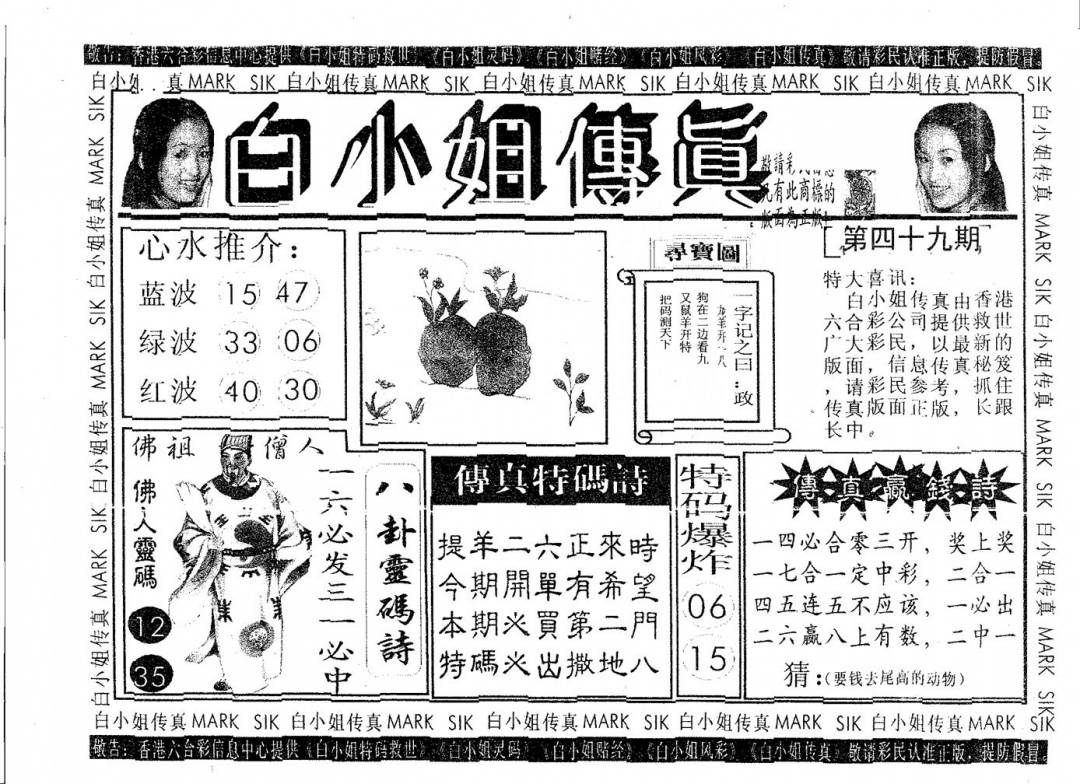 敬告：香港六合彩信息中心提供《白小姐特码救世》《白小姐灵码》《白小姐赌经》《白小姐风彩》《白小姐传真》敬请彩民认准正版，提防假冒
白小姐 真MARK SIK 白小姐传真MARK SIK 白小姐传真MARK SIK 白小姐传真MARK SIK 白小姐传真MARK SIK
白小姐傳眞
敬請彩
有此高標的
版面為正版
第四十九期
心水推介：
蓝波 15 47
绿波 33 06
红波 40 30
尋寶圖
一字记之曰：政
龙羊开一八
狗在二边看九
又鼠羊开特
把码测天下
特大喜讯：
白小姐传真由香港
六合彩公司提供救世
广大彩民，以最新的
版面，信息传真秘笈
，请彩民参考，抓住
传真版面正版，长跟
长中。
佛祖 僧人
佛人靈碼
12
35
一六必发三一必中
八卦靈碼詩
傳真特碼詩
提羊二六正來時
今期開單有希望
本期火買第二門
特碼火出撒地八
特码爆炸
06
15
傳真贏錢詩
一四必合零三开，奖上奖
一七合一定中彩，二合一
四五连五不应该，一必出
二六赢八上有数，二中一
猜：(要钱去尾高的动物)
白小姐传真MARK SIK 白小姐传真MARK SIK 白小姐传真MARK SIK 白小姐传真MARK SIK
白小姐传真 MARK SIK 白小姐传真 MARK SIK 白小姐传真 MARK SIK
白小姐传真MARK SIK 白小姐传真MARK SIK 白小姐传真MARK SIK 白小姐传真MARK SIK 白小姐传真MARK SIK
敬告：香港六合彩信息中心提供《白小姐特码救世》《白小姐灵码》《白小姐赌经》《白小姐风彩》《白小姐传真》敬请彩民认准正版，提防假冒